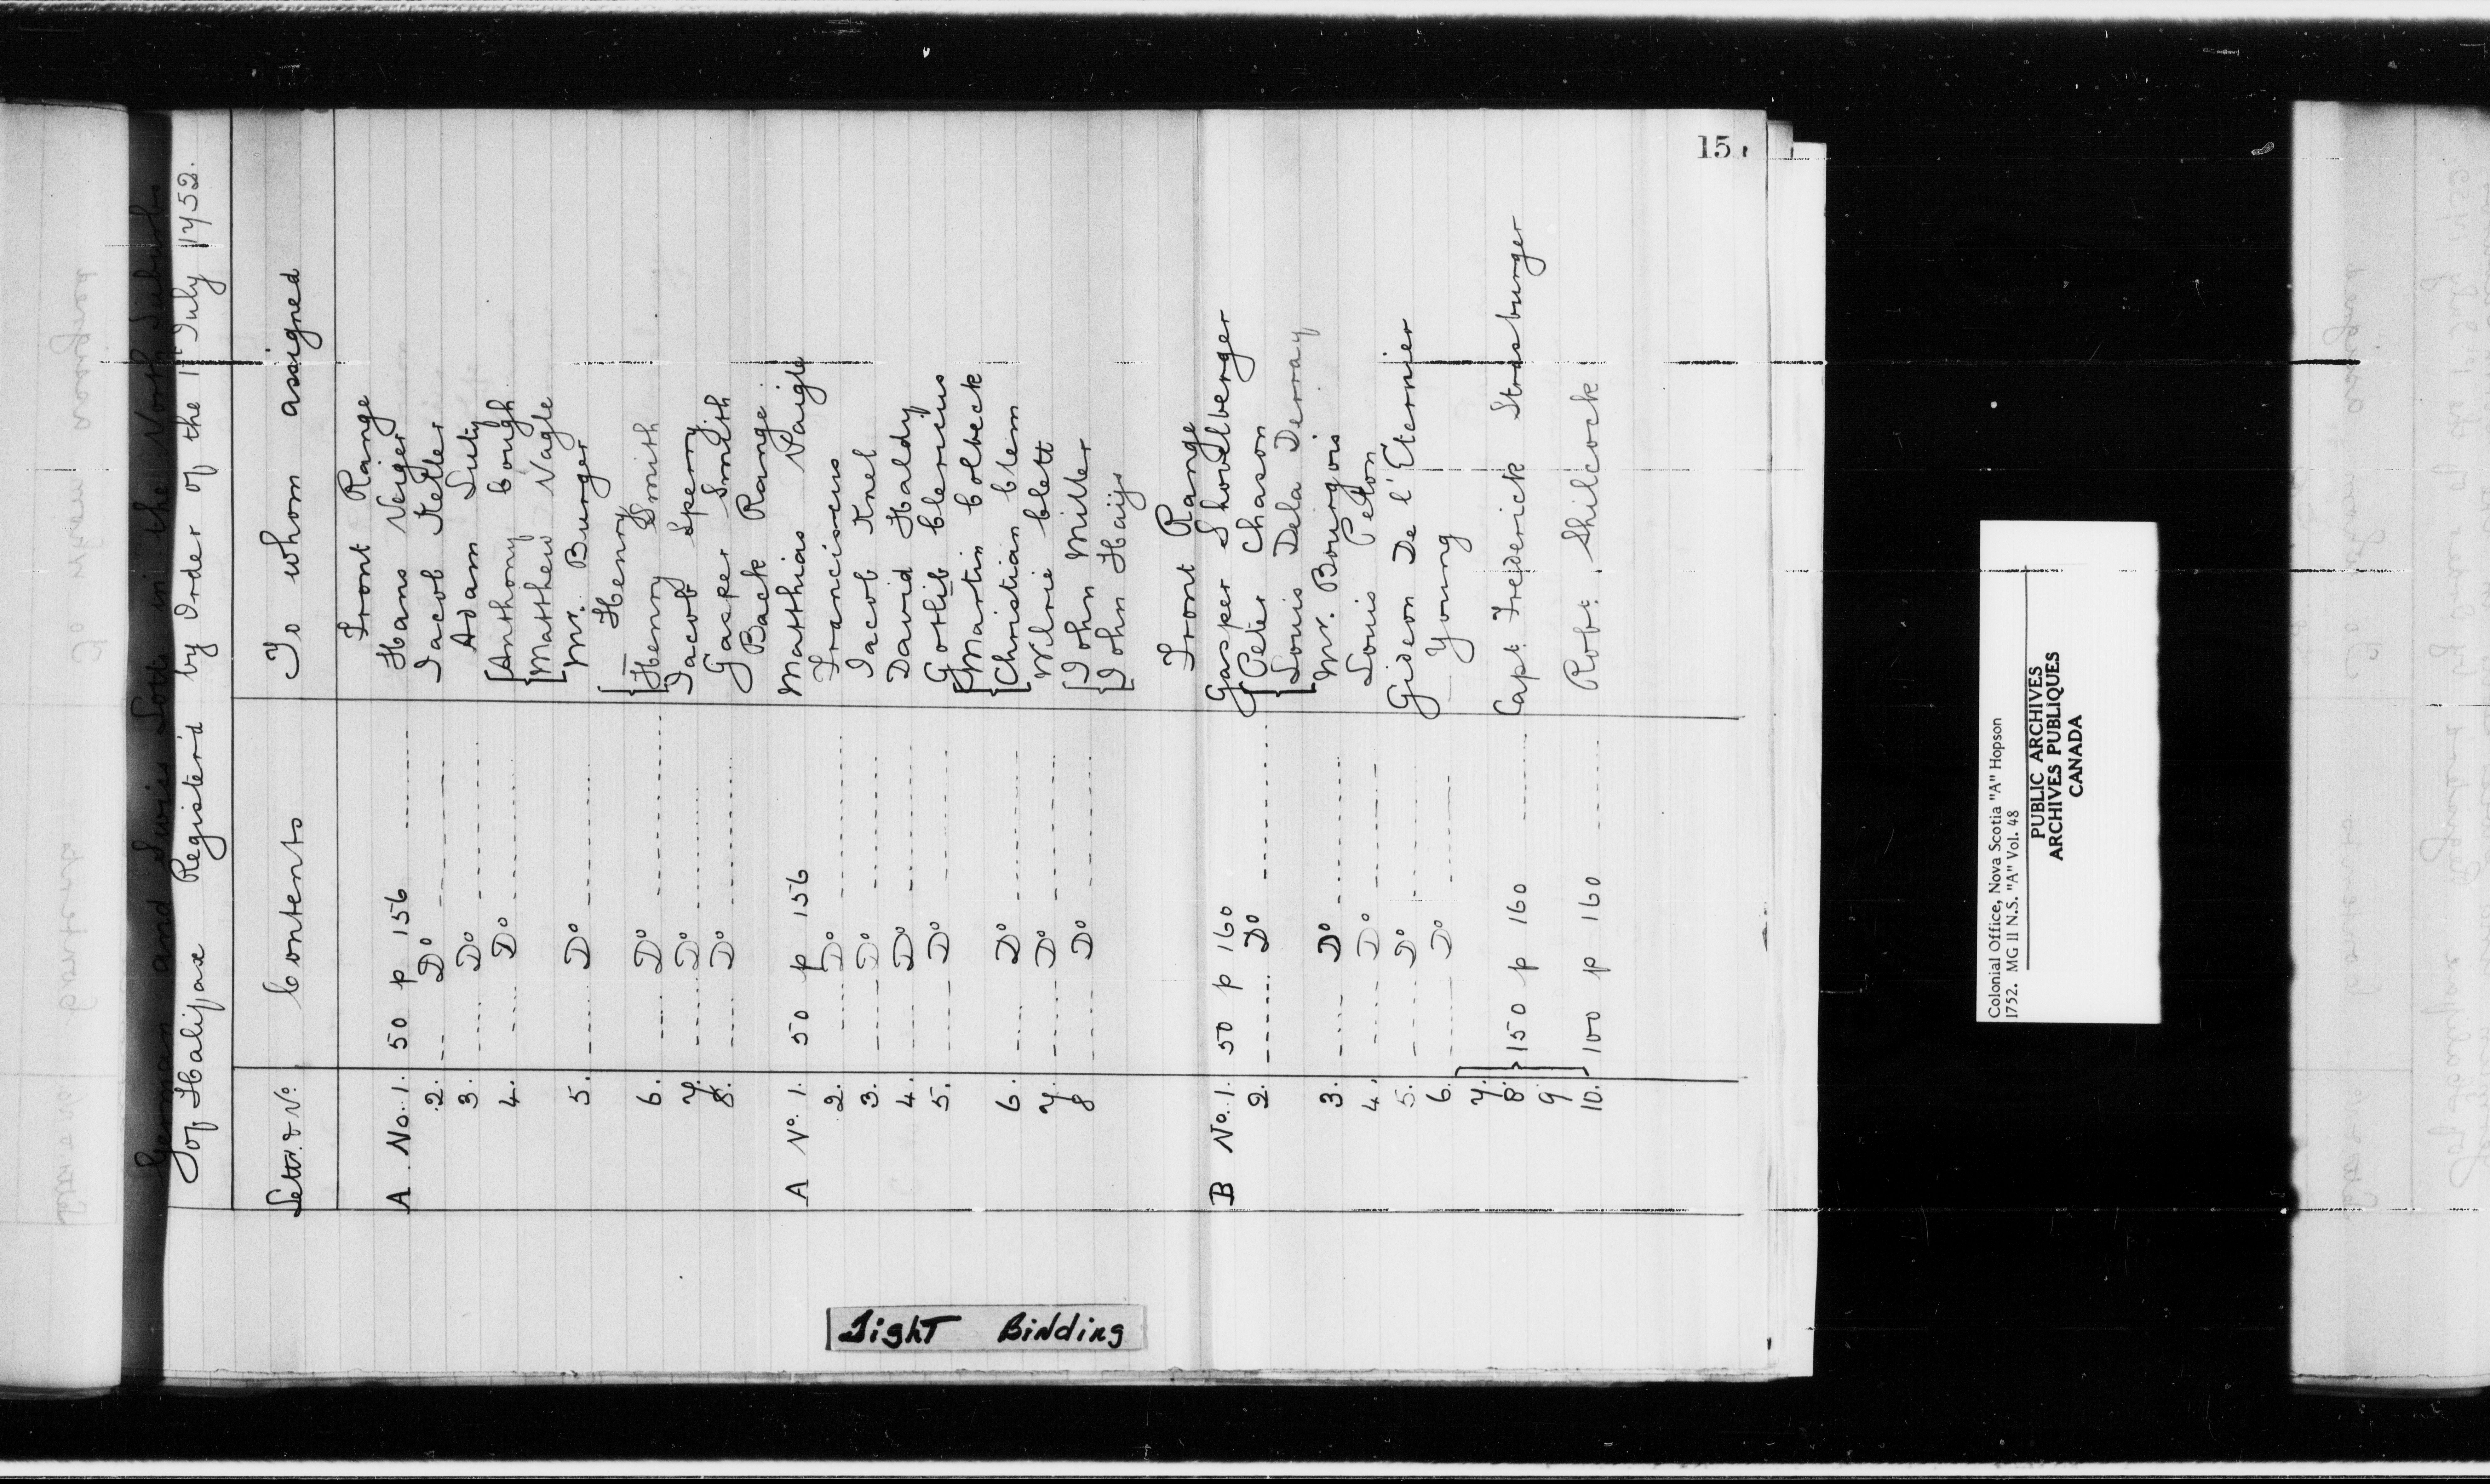 15
German and Swiss Lotts in the North Suburbs
of Halifax Register'd by Order of the 1st July 1752.
Lettr. & No. Contents To whom assigned
Front Range
A No. 1. 50 p 156 Hans Neiger
2. Do Jacob Keller
3. Do Adam Luty
4. Do Anthony Cough
Matthew Nagle
5. Do Mr. Burger
Henry
6. Do Henry Smith
7. Do Jacob Sperry
8. Do Gasper Smith
Back Range
A No. 1. 50 p 156 Matthias Paigle
2. Do Franciscus
3. Do Jacob Knel
4. Do David Haldy
5. Do Gotlib Clericus
Martin Colbeck
6. Do Christian Clem
7 Do Wilrie Clett
8 Do John Miller
John Haijs
Front Range
B No. 1. 50 p 160 Gasper Shovelberger
2. Do Peter Chason
Louis Dela Derray
3. Do Mr. Bourgois
4. Do Louis Peton
5. Do Gideon De l'Eternier
6. Do — Young
7.
8. 150 p 160 Capt. Frederick Strasburger
9
10. 100 p 160 Robt. Shilcock
Tight Binding
Colonial Office, Nova Scotia "A" Hopson
1752. MG 11 N.S. "A" Vol. 48
PUBLIC ARCHIVES
ARCHIVES PUBLIQUES
CANADA